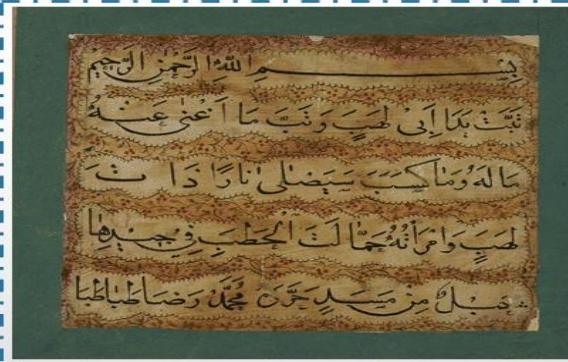 بِسْمِ اللّٰهِ الرَّحْمٰنِ الرَّحِيْمِ
تَبَّتْ يَدَا اَبِى لَهَبٍ وَتَبَّ مَا اَغْنٰى عَنْهُ
مَالُهُ وَمَا كَسَبَ سَيَصْلٰى نَارًا ذَا تَ
لَهَبٍ وَامْرَأَتُهُ حَمَّا لَتَ الْحَطَبِ فِي جِيدِهَا
حَبْلٌ مِنْ مَسَدٍ حَرَّرَهُ مُحَمَّد رضا طباطبا